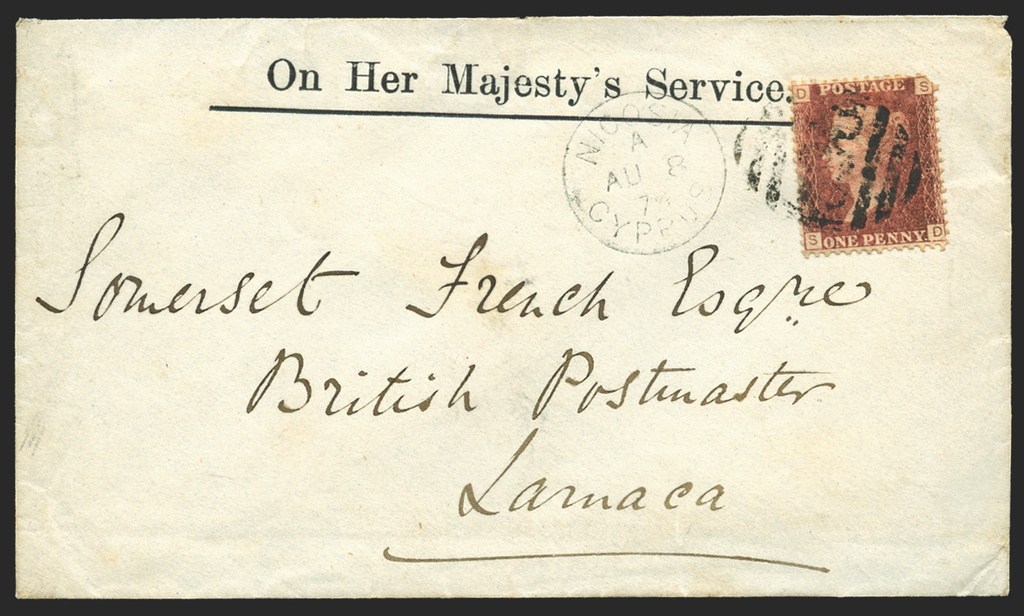 On Her Majesty's Service.
D POSTAGE S
NICOSIA
A
AU 8
CYPRUS
S ONE PENNY D
Somerset French Esqre
British Postmaster
Larnaca